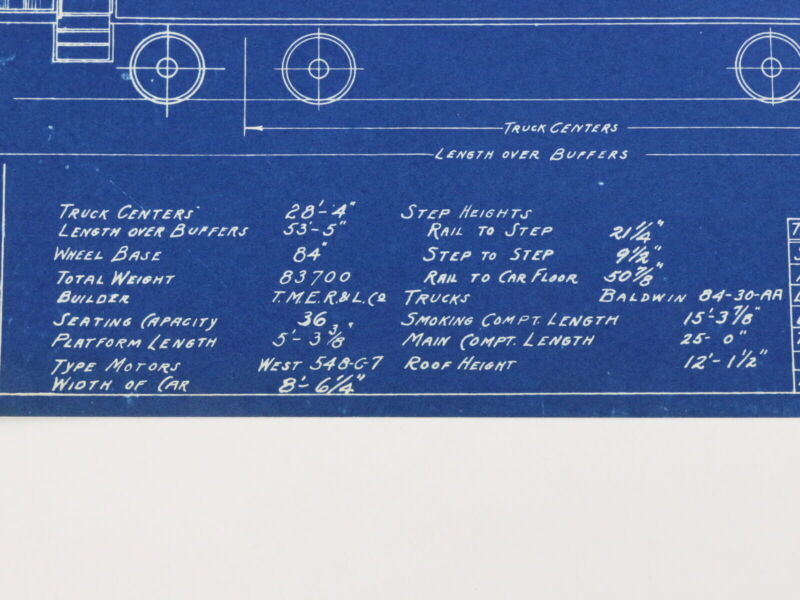 TRUCK CENTERS
LENGTH OVER BUFFERS
TRUCK CENTERS 28'-4"
LENGTH OVER BUFFERS 53'-5"
WHEEL BASE 84"
TOTAL WEIGHT 83700
BUILDER T.M.E.R.&L.CO
SEATING CAPACITY 36
PLATFORM LENGTH 5'-3 3/8"
TYPE MOTORS WEST 548-C-7
WIDTH OF CAR 8'-6 1/4"
STEP HEIGHTS
RAIL TO STEP 21 1/4"
STEP TO STEP 9 1/2"
RAIL TO CAR FLOOR 50 7/8"
TRUCKS BALDWIN 84-30-AA
SMOKING COMPT. LENGTH 15'-3 7/8"
MAIN COMPT. LENGTH 25-0"
ROOF HEIGHT 12'-1 1/2"